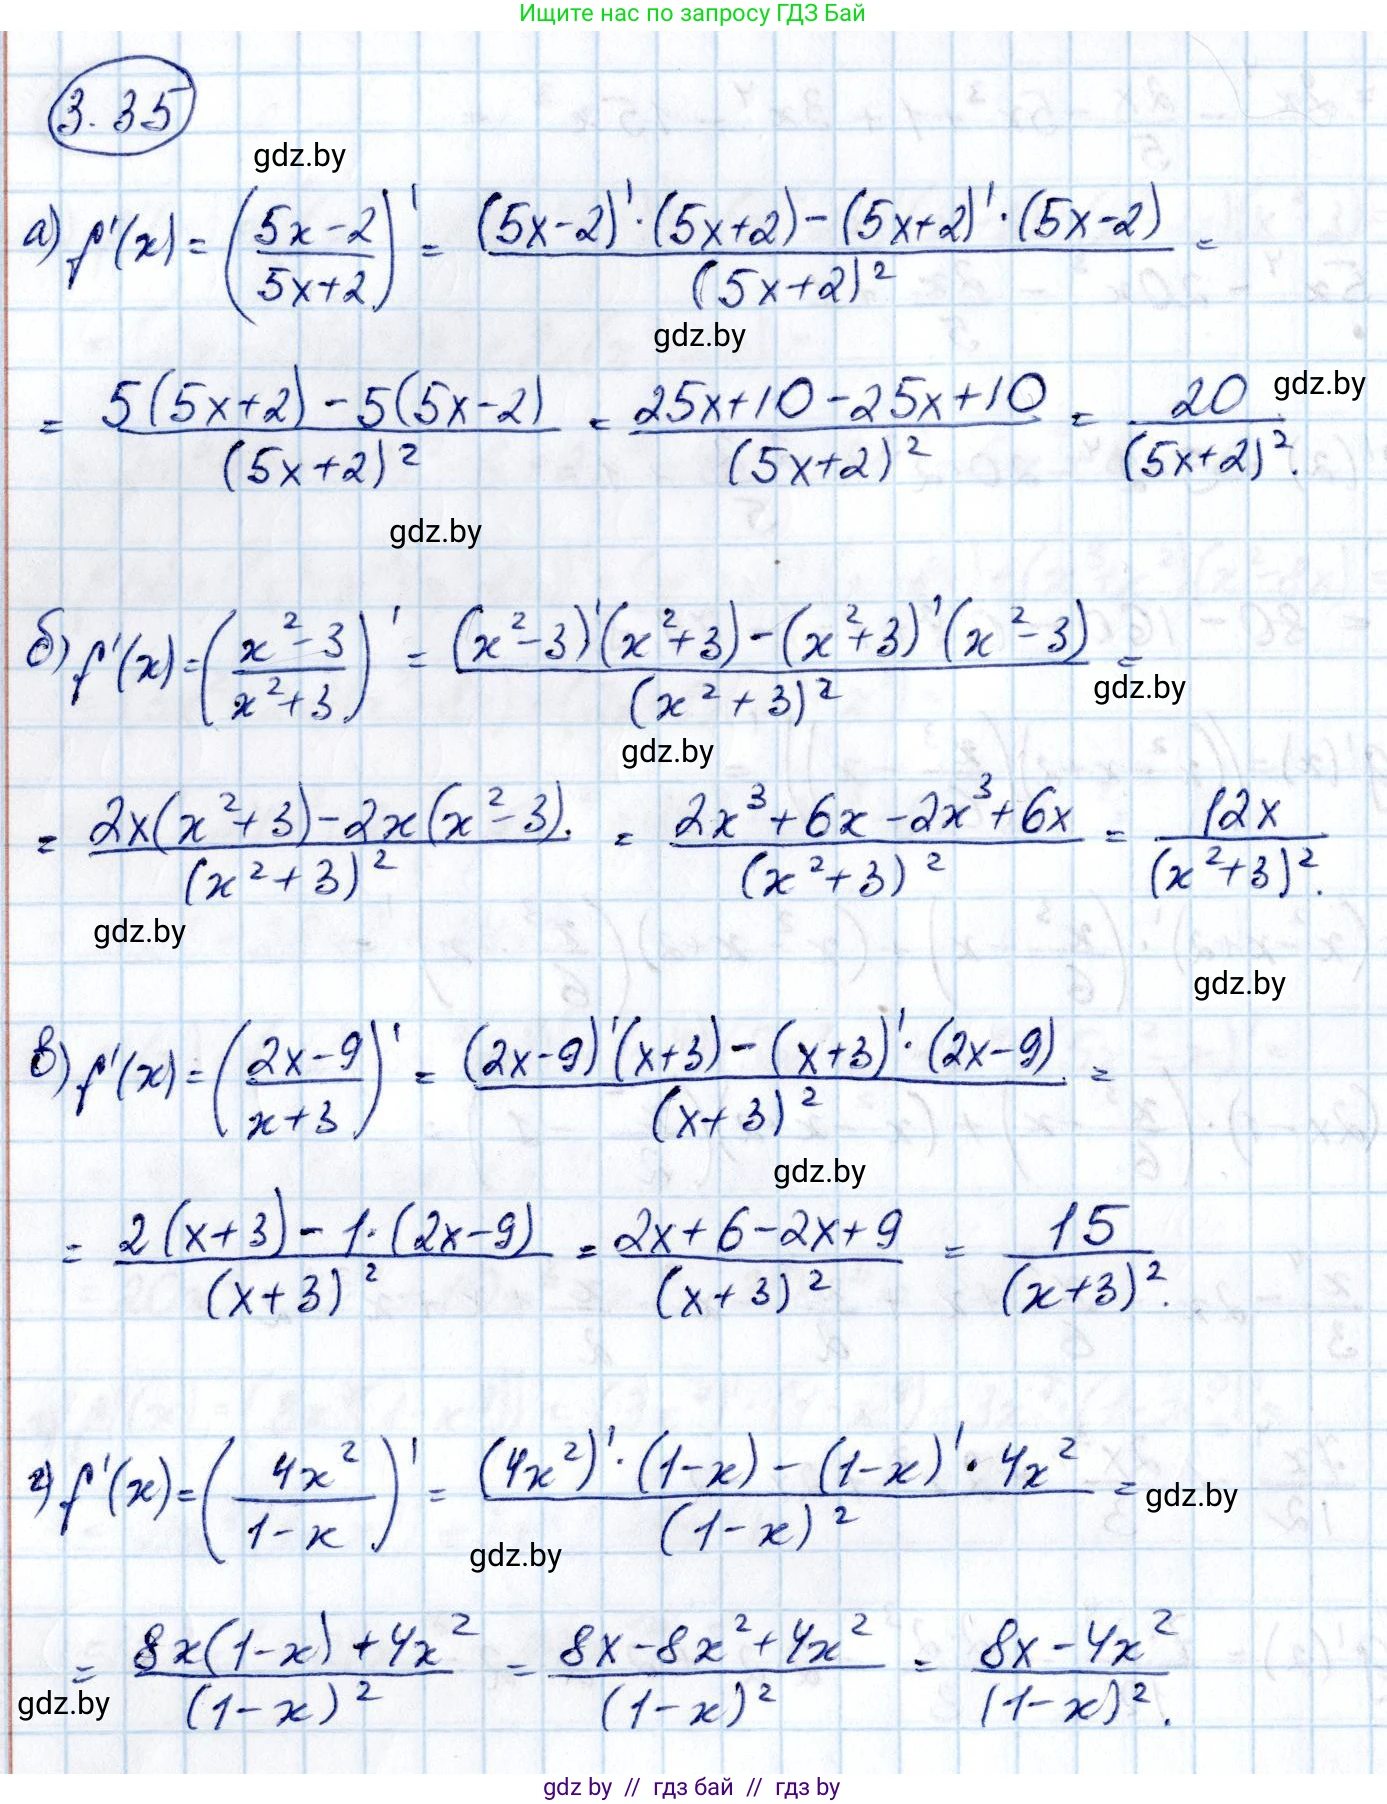 Ищите нас по запросу ГДЗ Бай
3.35
gdz.by
а) f'(x) = ((5x-2)/(5x+2))' = ((5x-2)'·(5x+2)-(5x+2)'·(5x-2))/(5x+2)² =
gdz.by
= (5(5x+2)-5(5x-2))/(5x+2)² = (25x+10-25x+10)/(5x+2)² = 20/(5x+2)².
gdz.by
gdz.by
б) f'(x) = ((x²-3)/(x²+3))' = ((x²-3)'(x²+3)-(x²+3)'(x²-3))/(x²+3)² =
gdz.by
gdz.by
= (2x(x²+3)-2x(x²-3))/(x²+3)² = (2x³+6x-2x³+6x)/(x²+3)² = 12x/(x²+3)².
gdz.by
gdz.by
в) f'(x) = ((2x-9)/(x+3))' = ((2x-9)'(x+3)-(x+3)'·(2x-9))/(x+3)² =
gdz.by
= (2(x+3)-1·(2x-9))/(x+3)² = (2x+6-2x+9)/(x+3)² = 15/(x+3)².
г) f'(x) = (4x²/(1-x))' = ((4x²)'·(1-x)-(1-x)'·4x²)/(1-x)² =
gdz.by
gdz.by
= (8x(1-x)+4x²)/(1-x)² = (8x-8x²+4x²)/(1-x)² = (8x-4x²)/(1-x)².
gdz.by
gdz.by // гдз бай // гдз by